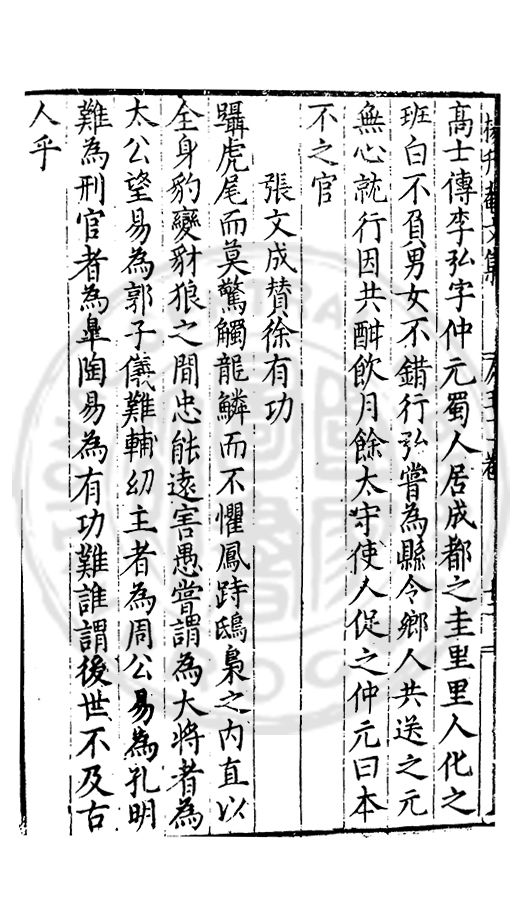 高士傳李弘字仲元蜀人居成都之圭里里人化之
班白不負男女不錯行弘嘗為縣令鄉人共送之元
無心就行因共酣飲月餘太守使人促之仲元曰本
不之官
張文成賛徐有功
躡虎尾而莫驚觸龍鱗而不懼鳳跱鴟梟之内直以
全身豹變豺狼之間忠能遠害愚嘗謂為大將者為
太公望易為郭子儀難輔幼主者為周公易為孔明
難為刑官者為臯陶易為有功難誰謂後世不及古
人乎